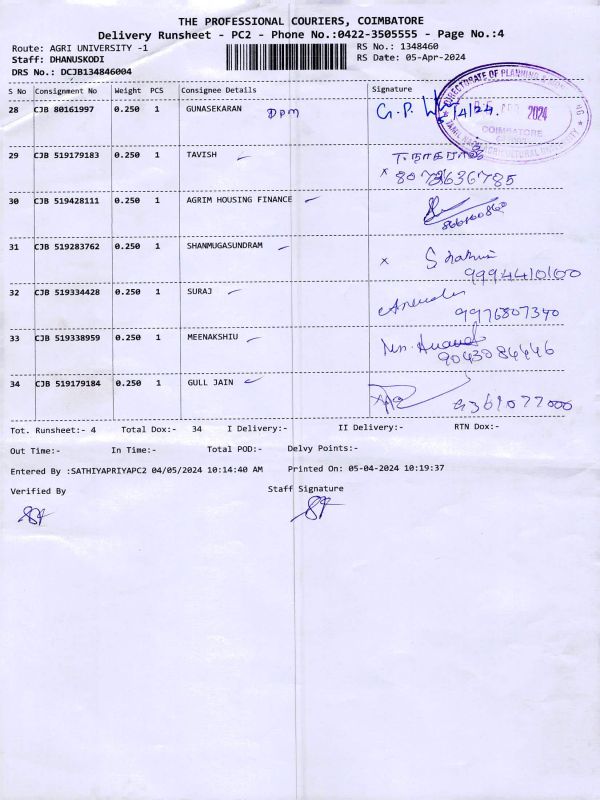 THE PROFESSIONAL COURIERS, COIMBATORE
Delivery Runsheet - PC2 - Phone No.:0422-3505555 - Page No.:4
Route: AGRI UNIVERSITY -1
RS No.: 1348460
Staff: DHANUSKODI
RS Date: 05-Apr-2024
DRS No.: DCJB134846004
S No Consignment No Weight PCS Consignee Details Signature
28 CJB 80161997 0.250 1 GUNASEKARAN DPM G.P.
DIRECTORATE OF PLANNING
2024
COIMBATORE
29 CJB 519179183 0.250 1 TAVISH T. நாகராஜ்
x 8072636785
30 CJB 519428111 0.250 1 AGRIM HOUSING FINANCE
31 CJB 519283762 0.250 1 SHANMUGASUNDRAM x
9994410100
32 CJB 519334428 0.250 1 SURAJ
9976807340
33 CJB 519338959 0.250 1 MEENAKSHIU
9043084446
34 CJB 519179184 0.250 1 GULL JAIN
9361077000
Tot. Runsheet:- 4 Total Dox:- 34 I Delivery:- II Delivery:- RTN Dox:-
Out Time:- In Time:- Total POD:- Delvy Points:-
Entered By :SATHIYAPRIYAPC2 04/05/2024 10:14:40 AM Printed On: 05-04-2024 10:19:37
Verified By Staff Signature